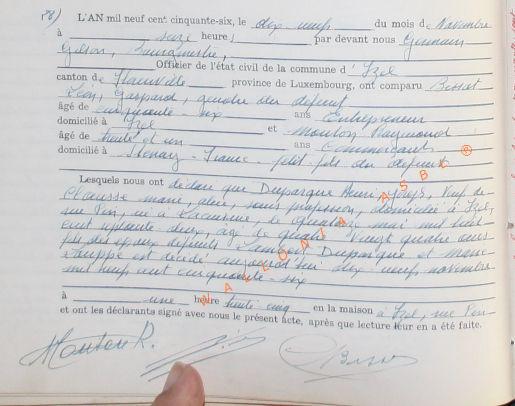 58) L'AN mil neuf cent cinquante-six, le dix neuf du mois de Novembre
à seize heures par devant nous Germain
Gilson, Bourgmestre,
Officier de l'état civil de la commune d' Izel
canton de Florenville province de Luxembourg, ont comparu
Léon, Gaspard, gendre du défunt
âgé de cinquante-six ans Entrepreneur
domicilié à Izel et Mouton Raymond
âgé de trente et un ans Commerçant
domicilié à Stenay - France - petit-fils du défunt
Lesquels nous ont déclaré que Duparque Henri, Joseph, Veuf de
Clausse Marie, sans profession, domicilié à Izel,
rue né à Lacuisine, le quatorze mai mil huit
cent septante deux, âgé de quatre vingt quatre ans
fils des époux défunts Lambert Duparque et
est décédé aujourd'hui dix neuf novembre
mil neuf cent cinquante-six
à une heure trente cinq en la maison à Izel, rue
et ont les déclarants signé avec nous le présent acte, après que lecture leur en a été faite.
Mouton R.
WALLONIA ASBL ®